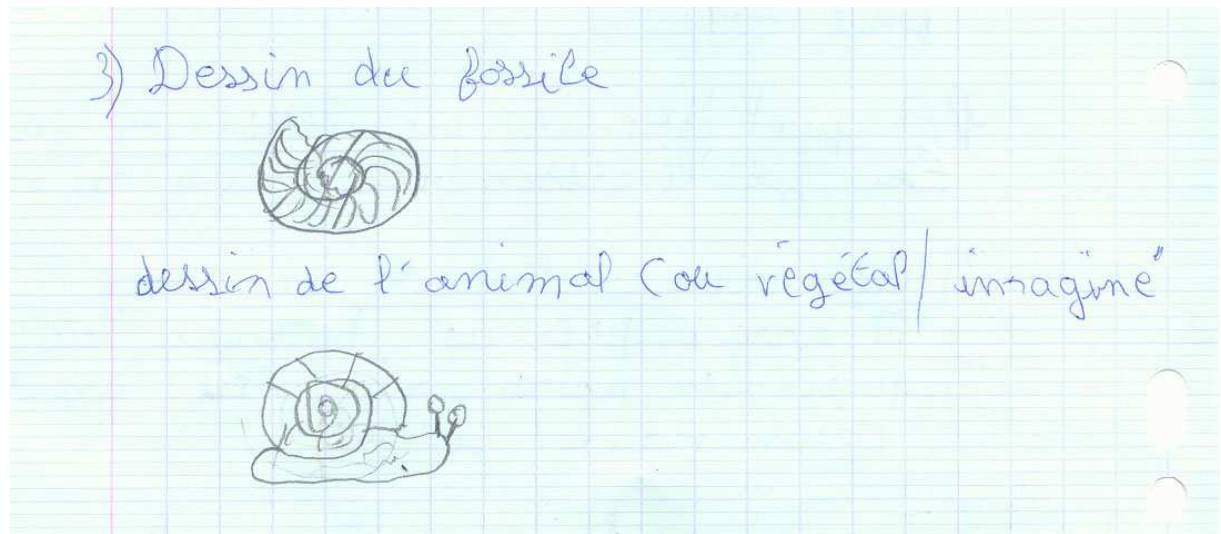 3) Dessin du fossile
dessin de l'animal (ou végétal) imaginé